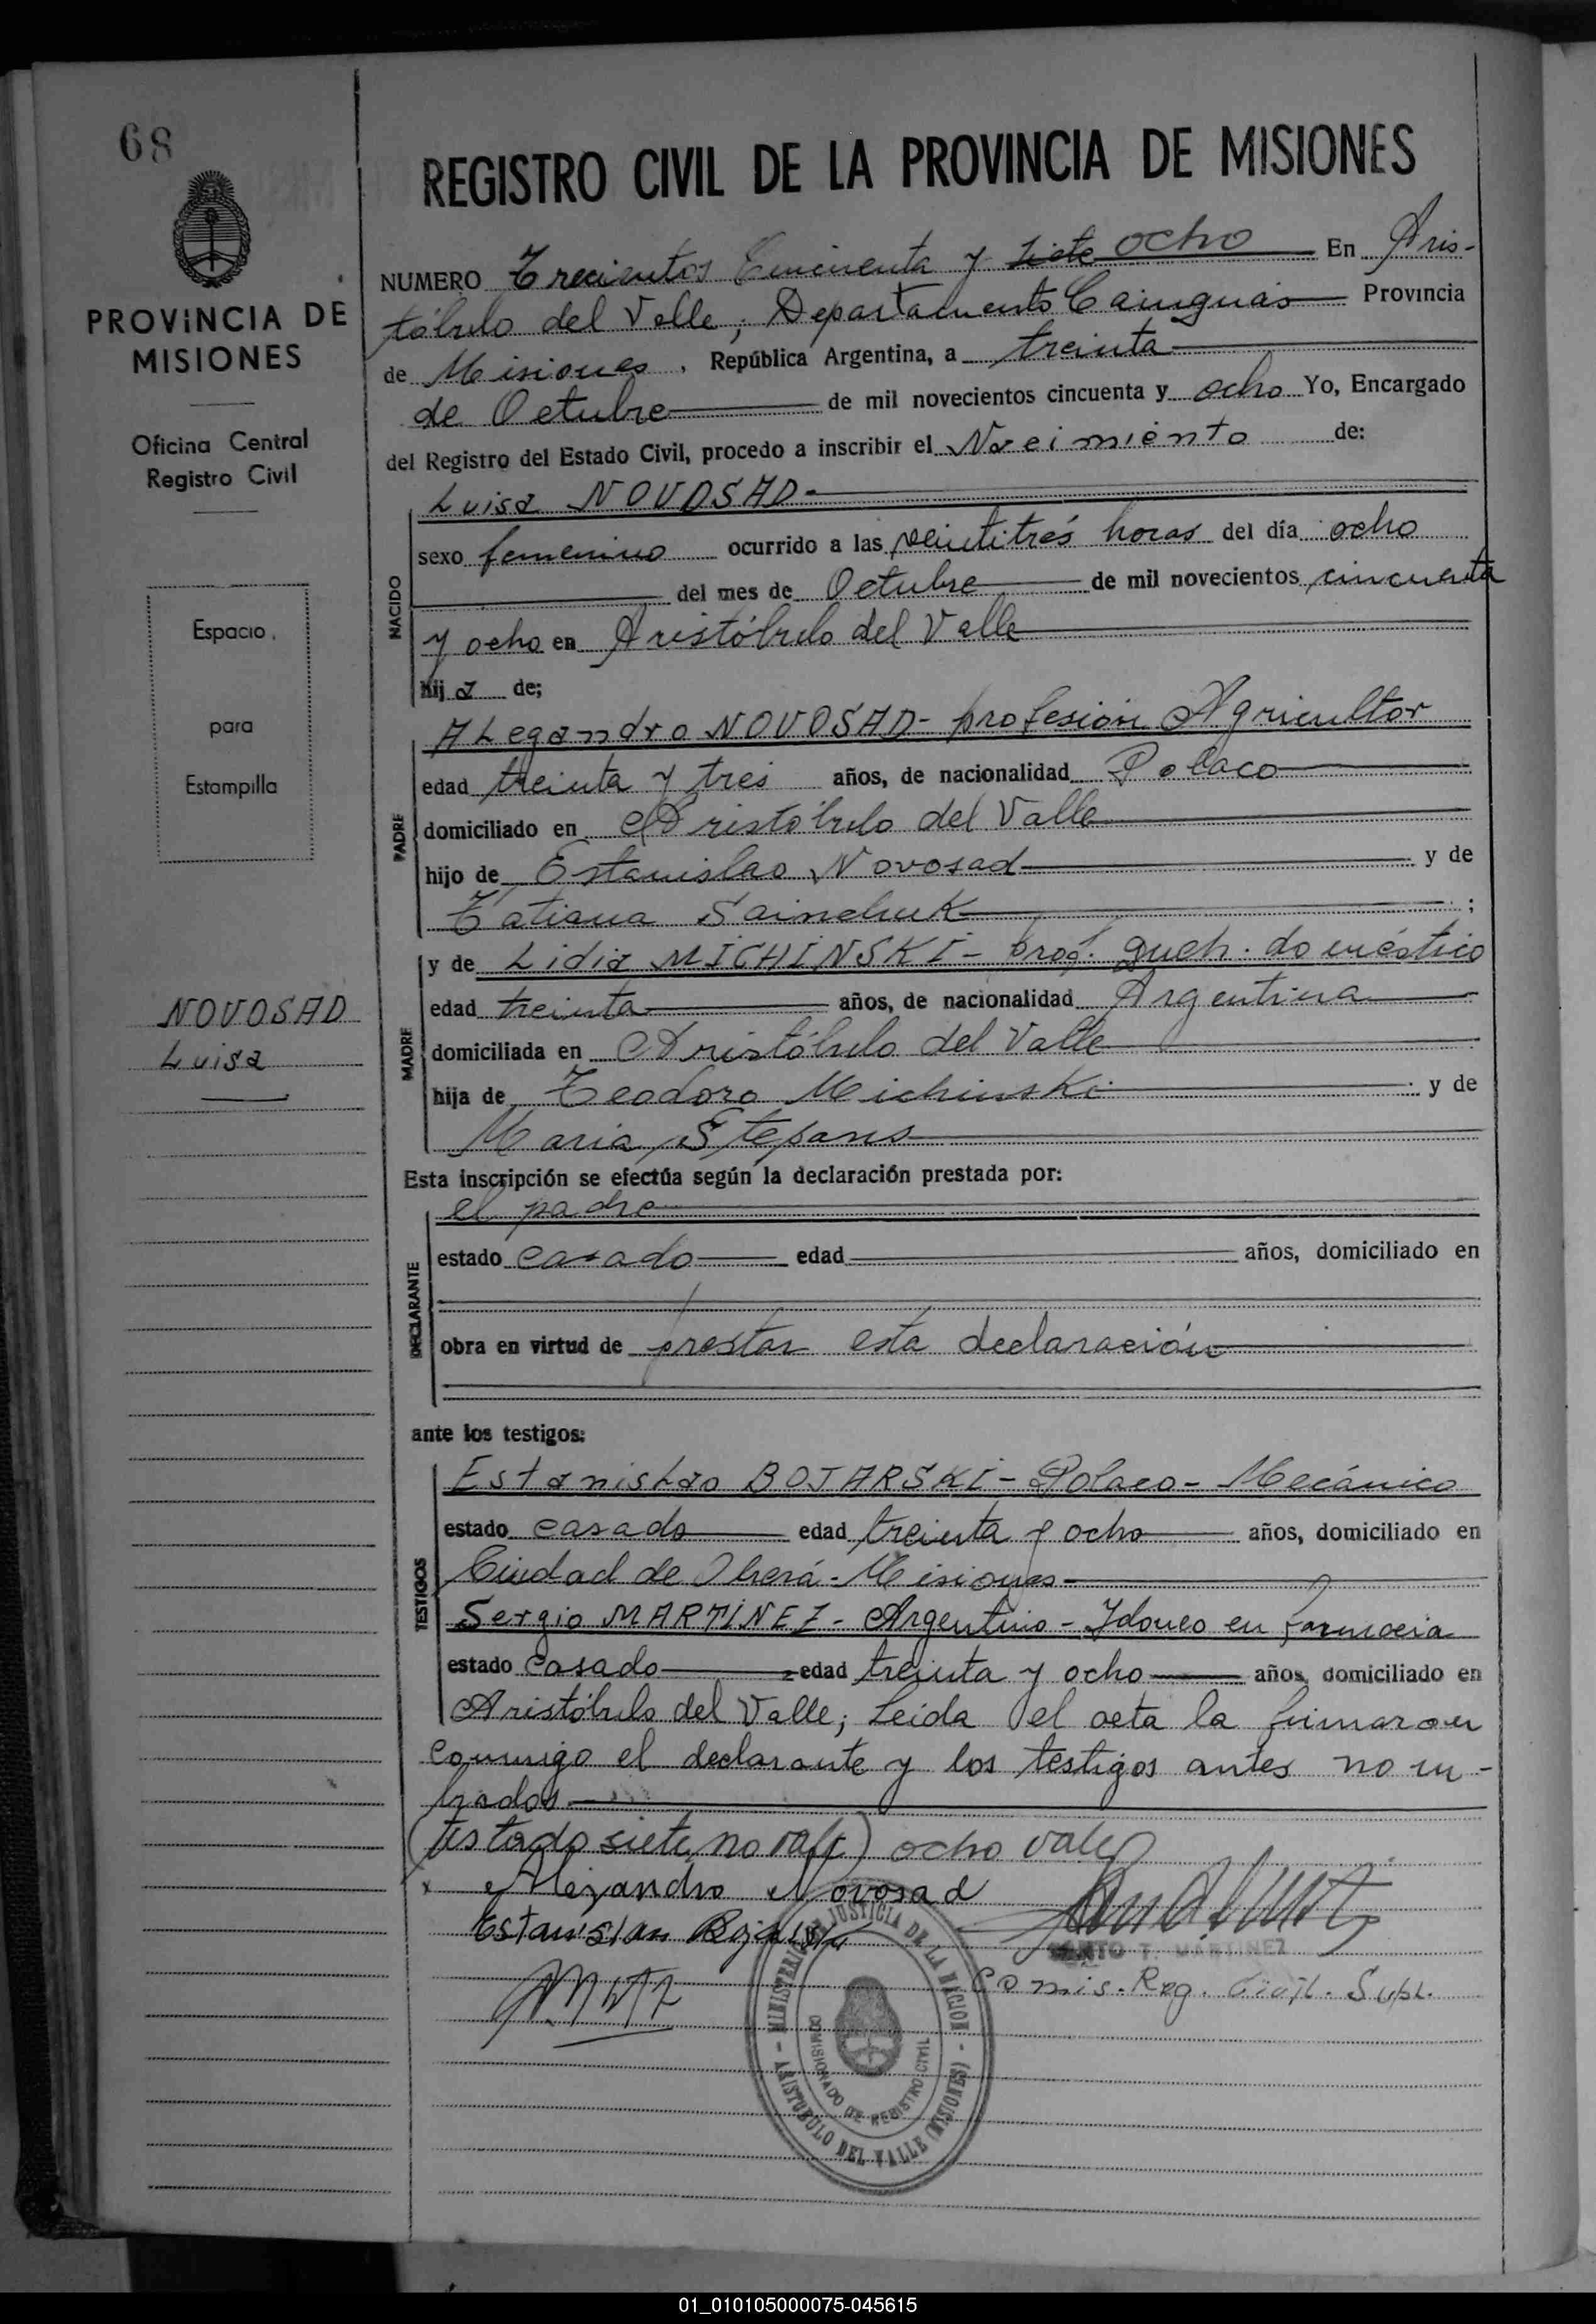 68
PROVINCIA DE
MISIONES
Oficina Central
Registro Civil
Espacio
para
Estampilla
NOVOSAD
Luisa
REGISTRO CIVIL DE LA PROVINCIA DE MISIONES
NUMERO Trecientos Cincuenta y siete ocho En Aris-
tóbulo del Valle, Departamento Cainguás Provincia
de Misiones, República Argentina, a treinta
de Octubre de mil novecientos cincuenta y ocho Yo, Encargado
del Registro del Estado Civil, procedo a inscribir el Nacimiento de:
NACIDO
Luisa NOVOSAD-
sexo femenino ocurrido a las veintitrés horas del día ocho
del mes de Octubre de mil novecientos cincuenta
y ocho en Aristóbulo del Valle
hija de;
PADRE
ALegandro NOVOSAD- profesión Agricultor
edad treinta y tres años, de nacionalidad Polaco
domiciliado en Aristóbulo del Valle
hijo de Estanislao Novosad y de
Tatiana Sainchuk ;
MADRE
y de Lidia MICHINSKI- prof. queh. doméstico
edad treinta años, de nacionalidad Argentina
domiciliada en Aristóbulo del Valle
hija de Teodoro Michinski y de
Maria
Esta inscripción se efectúa según la declaración prestada por:
DECLARANTE
el padre
estado casado edad años, domiciliado en
obra en virtud de prestar esta declaración
ante los testigos:
TESTIGOS
EstanisLao BOJARSKI- Polaco- Mecánico
estado casado edad treinta y ocho años, domiciliado en
Ciudad de Oberá- Misiones-
Sergio MARTINEZ- Argentino- Idoneo en farmacia
estado casado edad treinta y ocho años, domiciliado en
Aristóbulo del Valle; Leida el acta la firmaron
conmigo el declarante y los testigos antes nom-
brados
(testado siete, no vale) ocho vale
x Alejandro Novosad
Estanislao
T. MARTINEZ
Comis. Reg. Civil. Supl.
MINISTERIO DE JUSTICIA DE LA NACION - ARISTOBULO DEL VALLE (MISIONES) -
COMISIONADO DE REGISTRO CIVIL
01_010105000075-045615